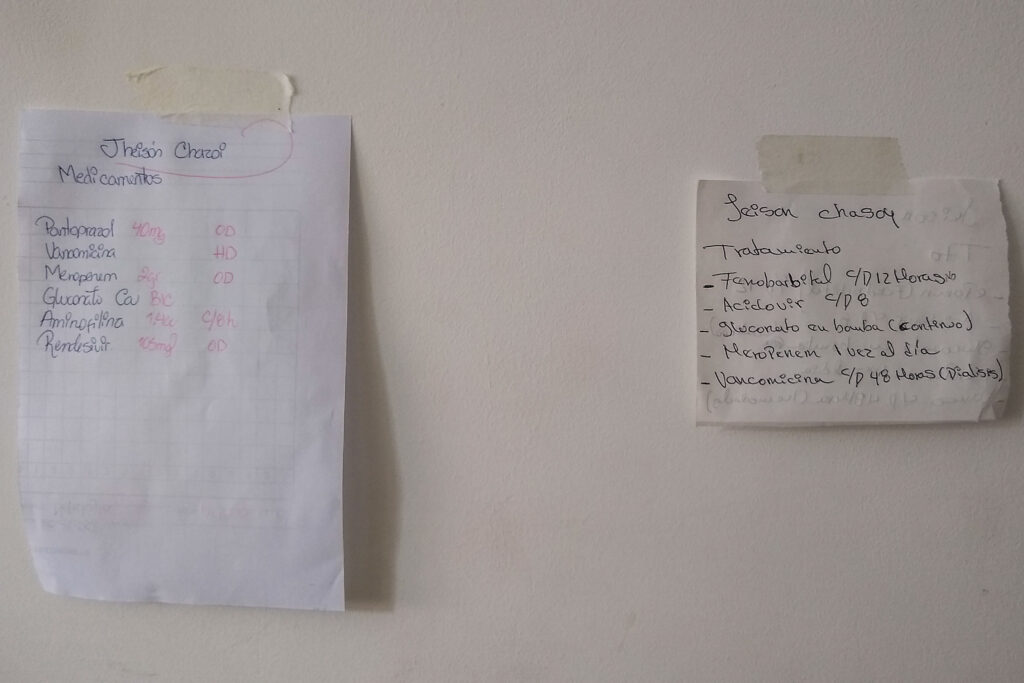 Jheisón Chazoi
Medicamentos
Pantoprazol 40mg OD
Vancomicina HD
Meropenem 2gr OD
Gluconato Ca BIC
Aminofilina c/8h
Rendesivir OD
Jeison chasoy
Tratamiento
- Fenobarbital C/D 12 Horas
- Aciclovir C/D 8
- gluconato en bomba (continuo)
- Meropenem 1 vez al día
- Vancomicina C/D 48 Horas (Dialisis)